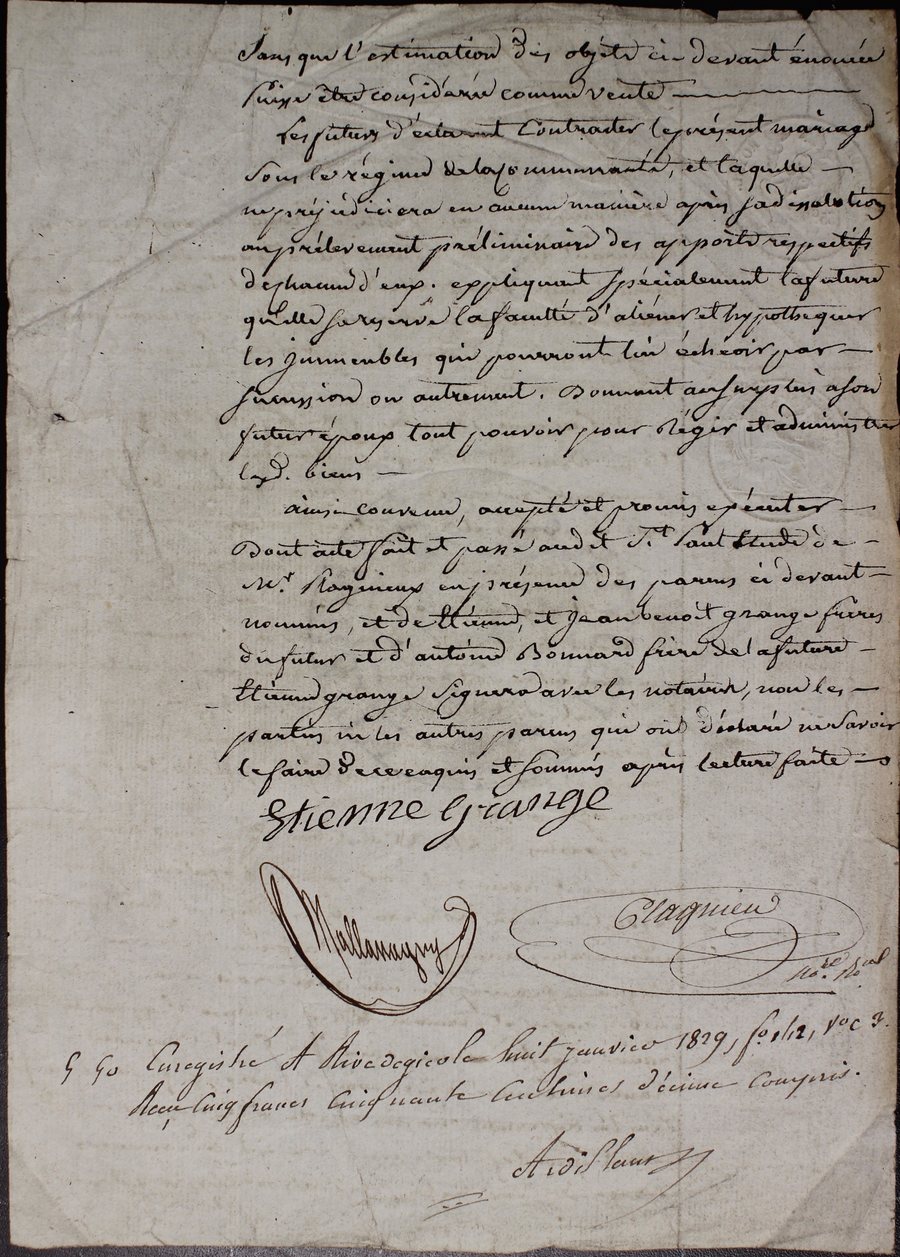 Sans que l'estimation des objets ci-devant énoncés
Puisse être considérée comme vente
Les futurs déclarent Contracter le présent mariage
Sous le régime de la Communauté, et laquelle
ne préjudiciera en aucune manière après sa dissolution
au prélèvement préliminaire des apports respectifs
de chacun d'eux. expliquant spécialement la future
qu'elle se réserve la faculté d'aliéner et hypothéquer
les immeubles qui pourront lui échéoir par
succession ou autrement. Donnant au surplus a son
futur époux tout pouvoir pour Régir et administrer
lesd. biens
ainsi convenu, accepté et promis exécuter
Dont acte fait et passé aud et St. Paul Etude de
Mr. en présence des parens ci devant
nommés, et de Etienne, et Jean benoit grange frères
du futur et d'antoine Bonnard frère de la future
Etienne grange Signera avec les notaires, non les
parties ni les autres parens qui ont déclaré ne Savoir
le faire de ce enquis et sommés après lecture faite
Etienne Grange
Nore. Roal
5 50 Enregistré A Rivedegier le huit janvier 1829, fo. 112, Vo c 3.
Reçu Cinq francs Cinquante Centimes décime compris.